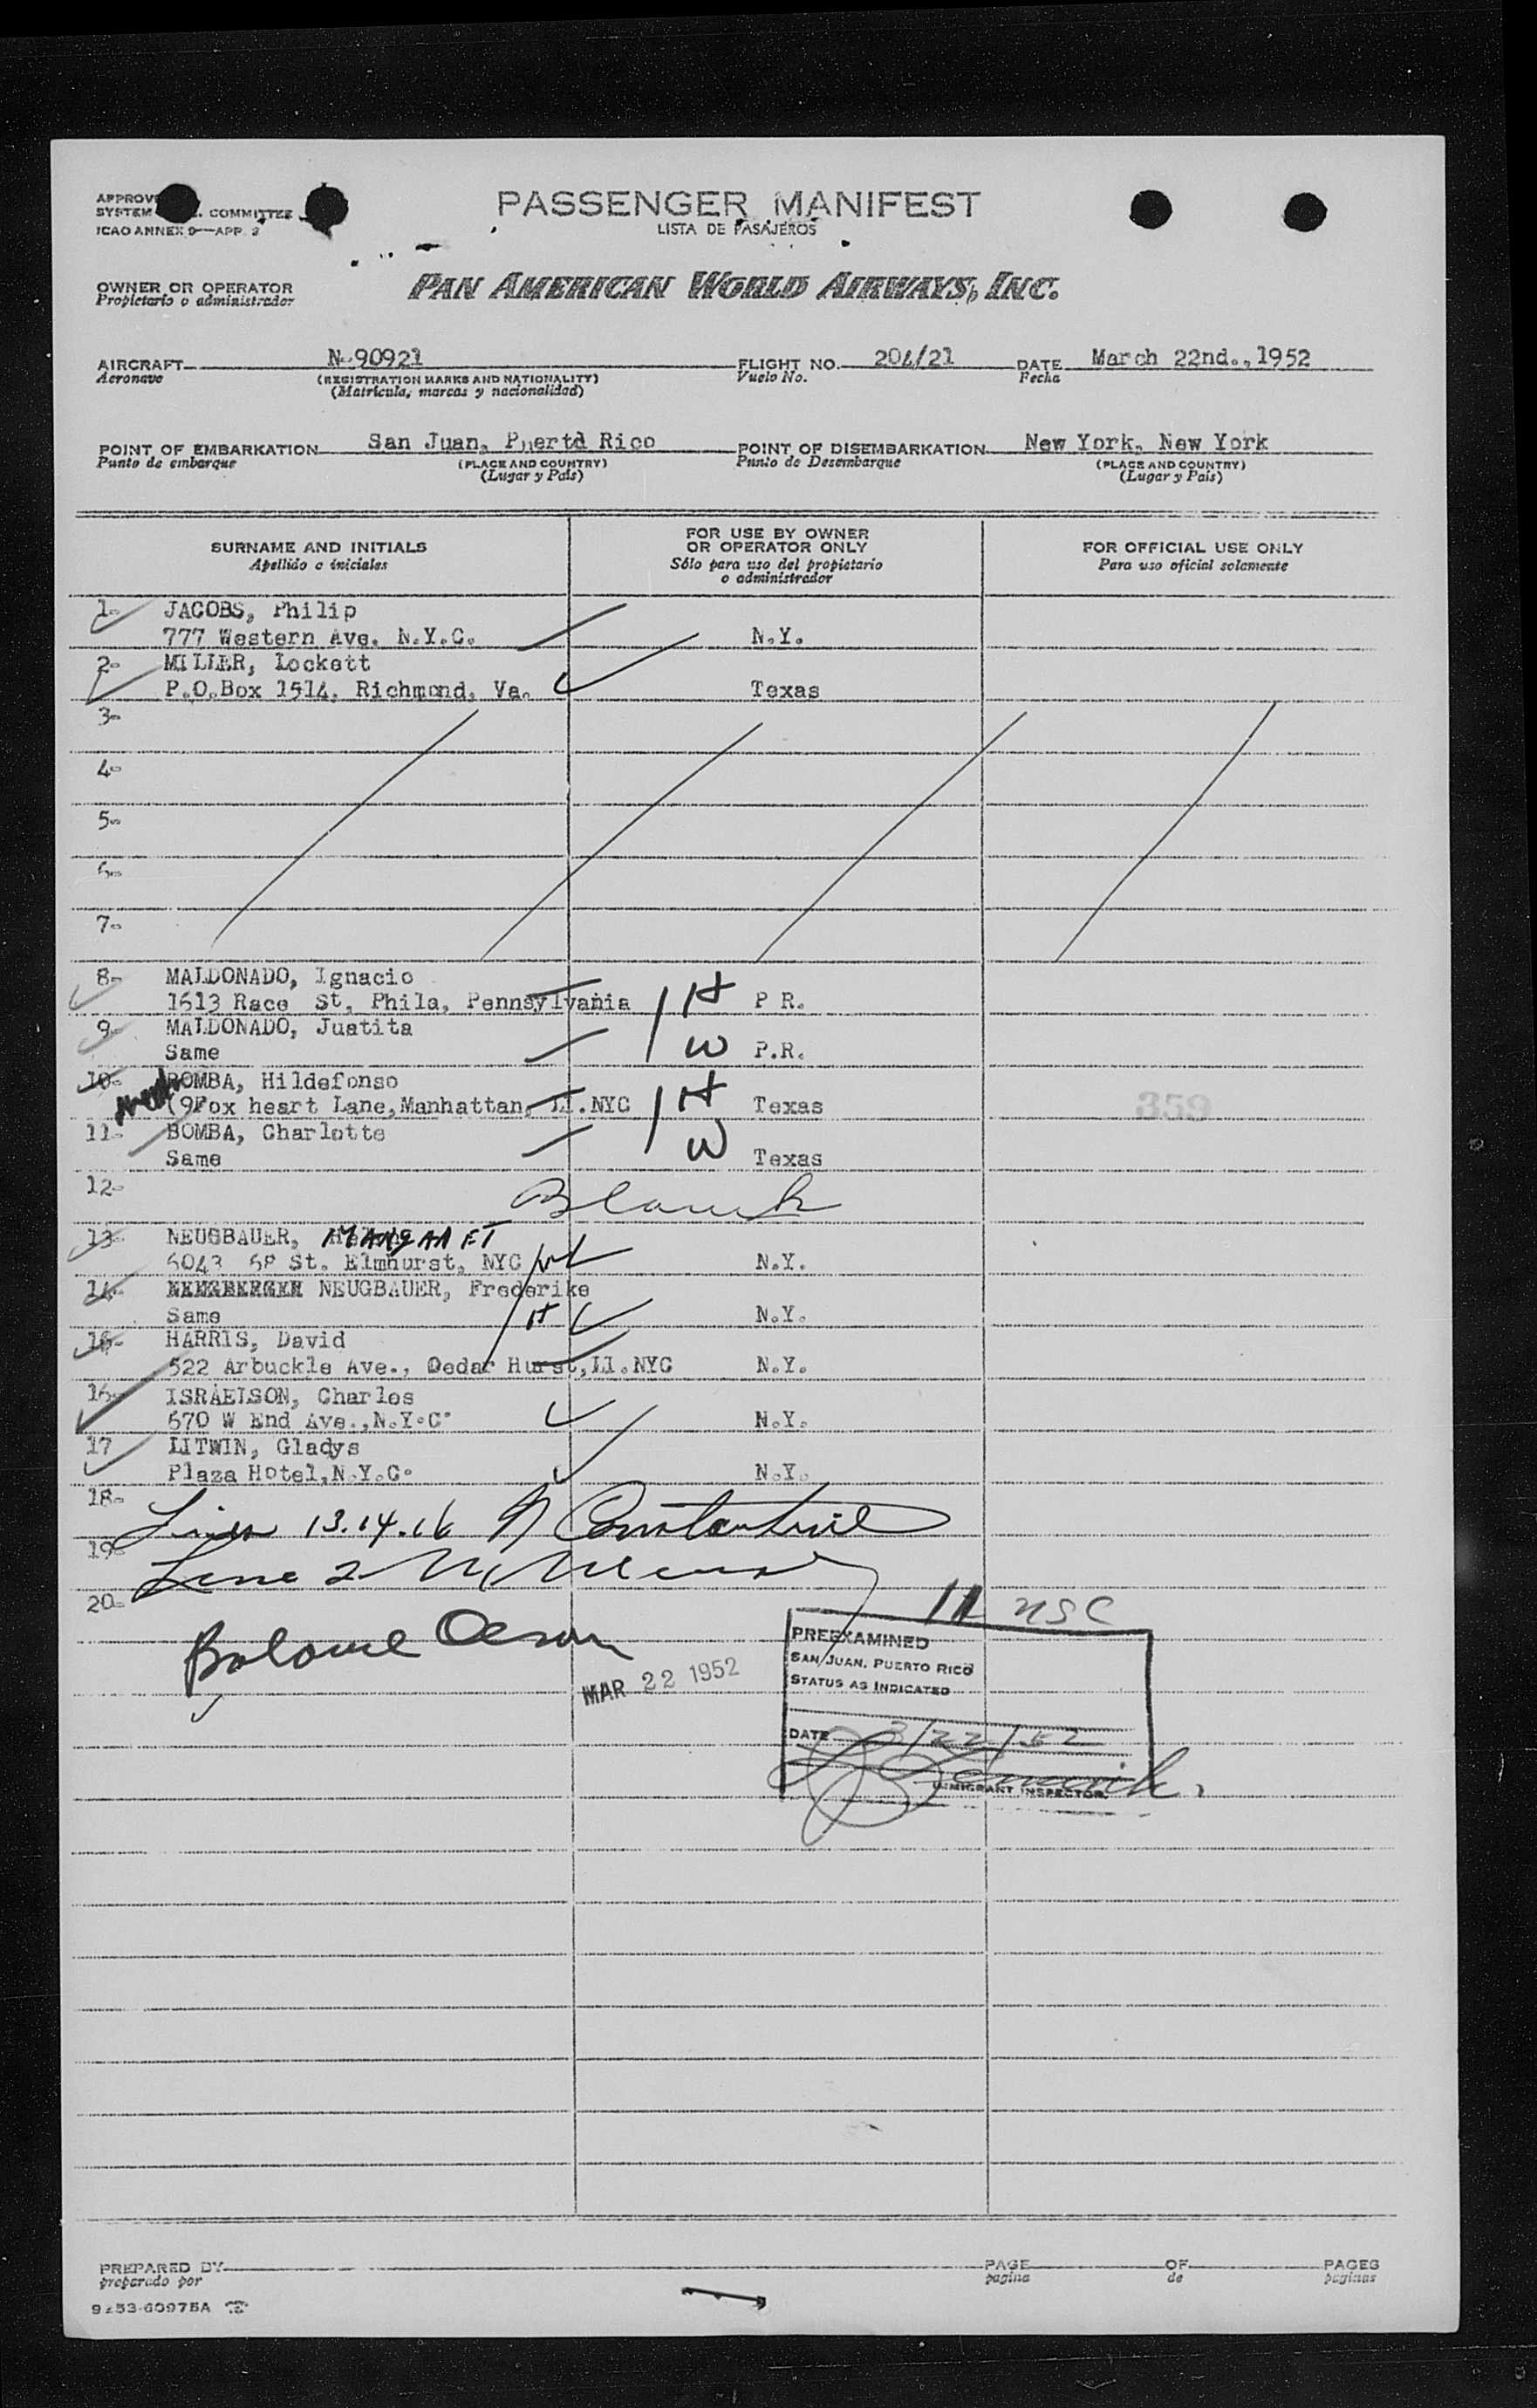 PASSENGER MANIFEST
LISTA DE PASAJEROS
SYSTEM COMMITTEE
ICAO ANNEX 9—APP. 3
OWNER OR OPERATOR
Propietario o administrador
PAN AMERICAN WORLD AIRWAYS, INC.
AIRCRAFT N-90921 FLIGHT NO. 204/21 DATE March 22nd.,1952
Aeronave (REGISTRATION MARKS AND NATIONALITY) Vuelo No. Fecha
(Matrícula, marcas y nacionalidad)
POINT OF EMBARKATION San Juan, Puerto Rico POINT OF DISEMBARKATION New York, New York
Punto de embarque (PLACE AND COUNTRY) Punto de Desembarque (PLACE AND COUNTRY)
(Lugar y País) (Lugar y País)
SURNAME AND INITIALS FOR USE BY OWNER OR OPERATOR ONLY FOR OFFICIAL USE ONLY
Apellido o iniciales Sólo para uso del propietario o administrador Para uso oficial solamente
1- JACOBS, Philip
777 Western Ave. N.Y.C. N.Y.
2- MILLER, Lockett
P.O.Box 1514, Richmond, Va. Texas
3-
4-
5-
6-
7-
8- MALDONADO, Ignacio
1613 Race St, Phila, Pennsylvania H P R.
9- MALDONADO, Juatita
Same W P.R.
10- BOMBA, Hildefonso
(9Fox heart Lane,Manhattan, LI.NYC H Texas
359
11- BOMBA, Charlotte
Same W Texas
12- Blank
13- NEUGBAUER, MARGARET
6043 68 St. Elmhurst, NYC N.Y.
14- NEUGBAUER, Frederike
Same H N.Y.
15- HARRIS, David
522 Arbuckle Ave., Cedar Hurst,LI.NYC N.Y.
16- ISRAELSON, Charles
670 W End Ave.,N.Y.C. N.Y.
17 LITWIN, Gladys
Plaza Hotel,N.Y.C. N.Y.
18-
Lines 13.14.16
19-
Line 2
20-
11 USC
PREEXAMINED
SAN JUAN, PUERTO RICO
STATUS AS INDICATED
MAR 22 1952
DATE 3/22/52
IMMIGRANT INSPECTOR.
PREPARED BY PAGE OF PAGES
preparado por pagina de paginas
9253-60975A